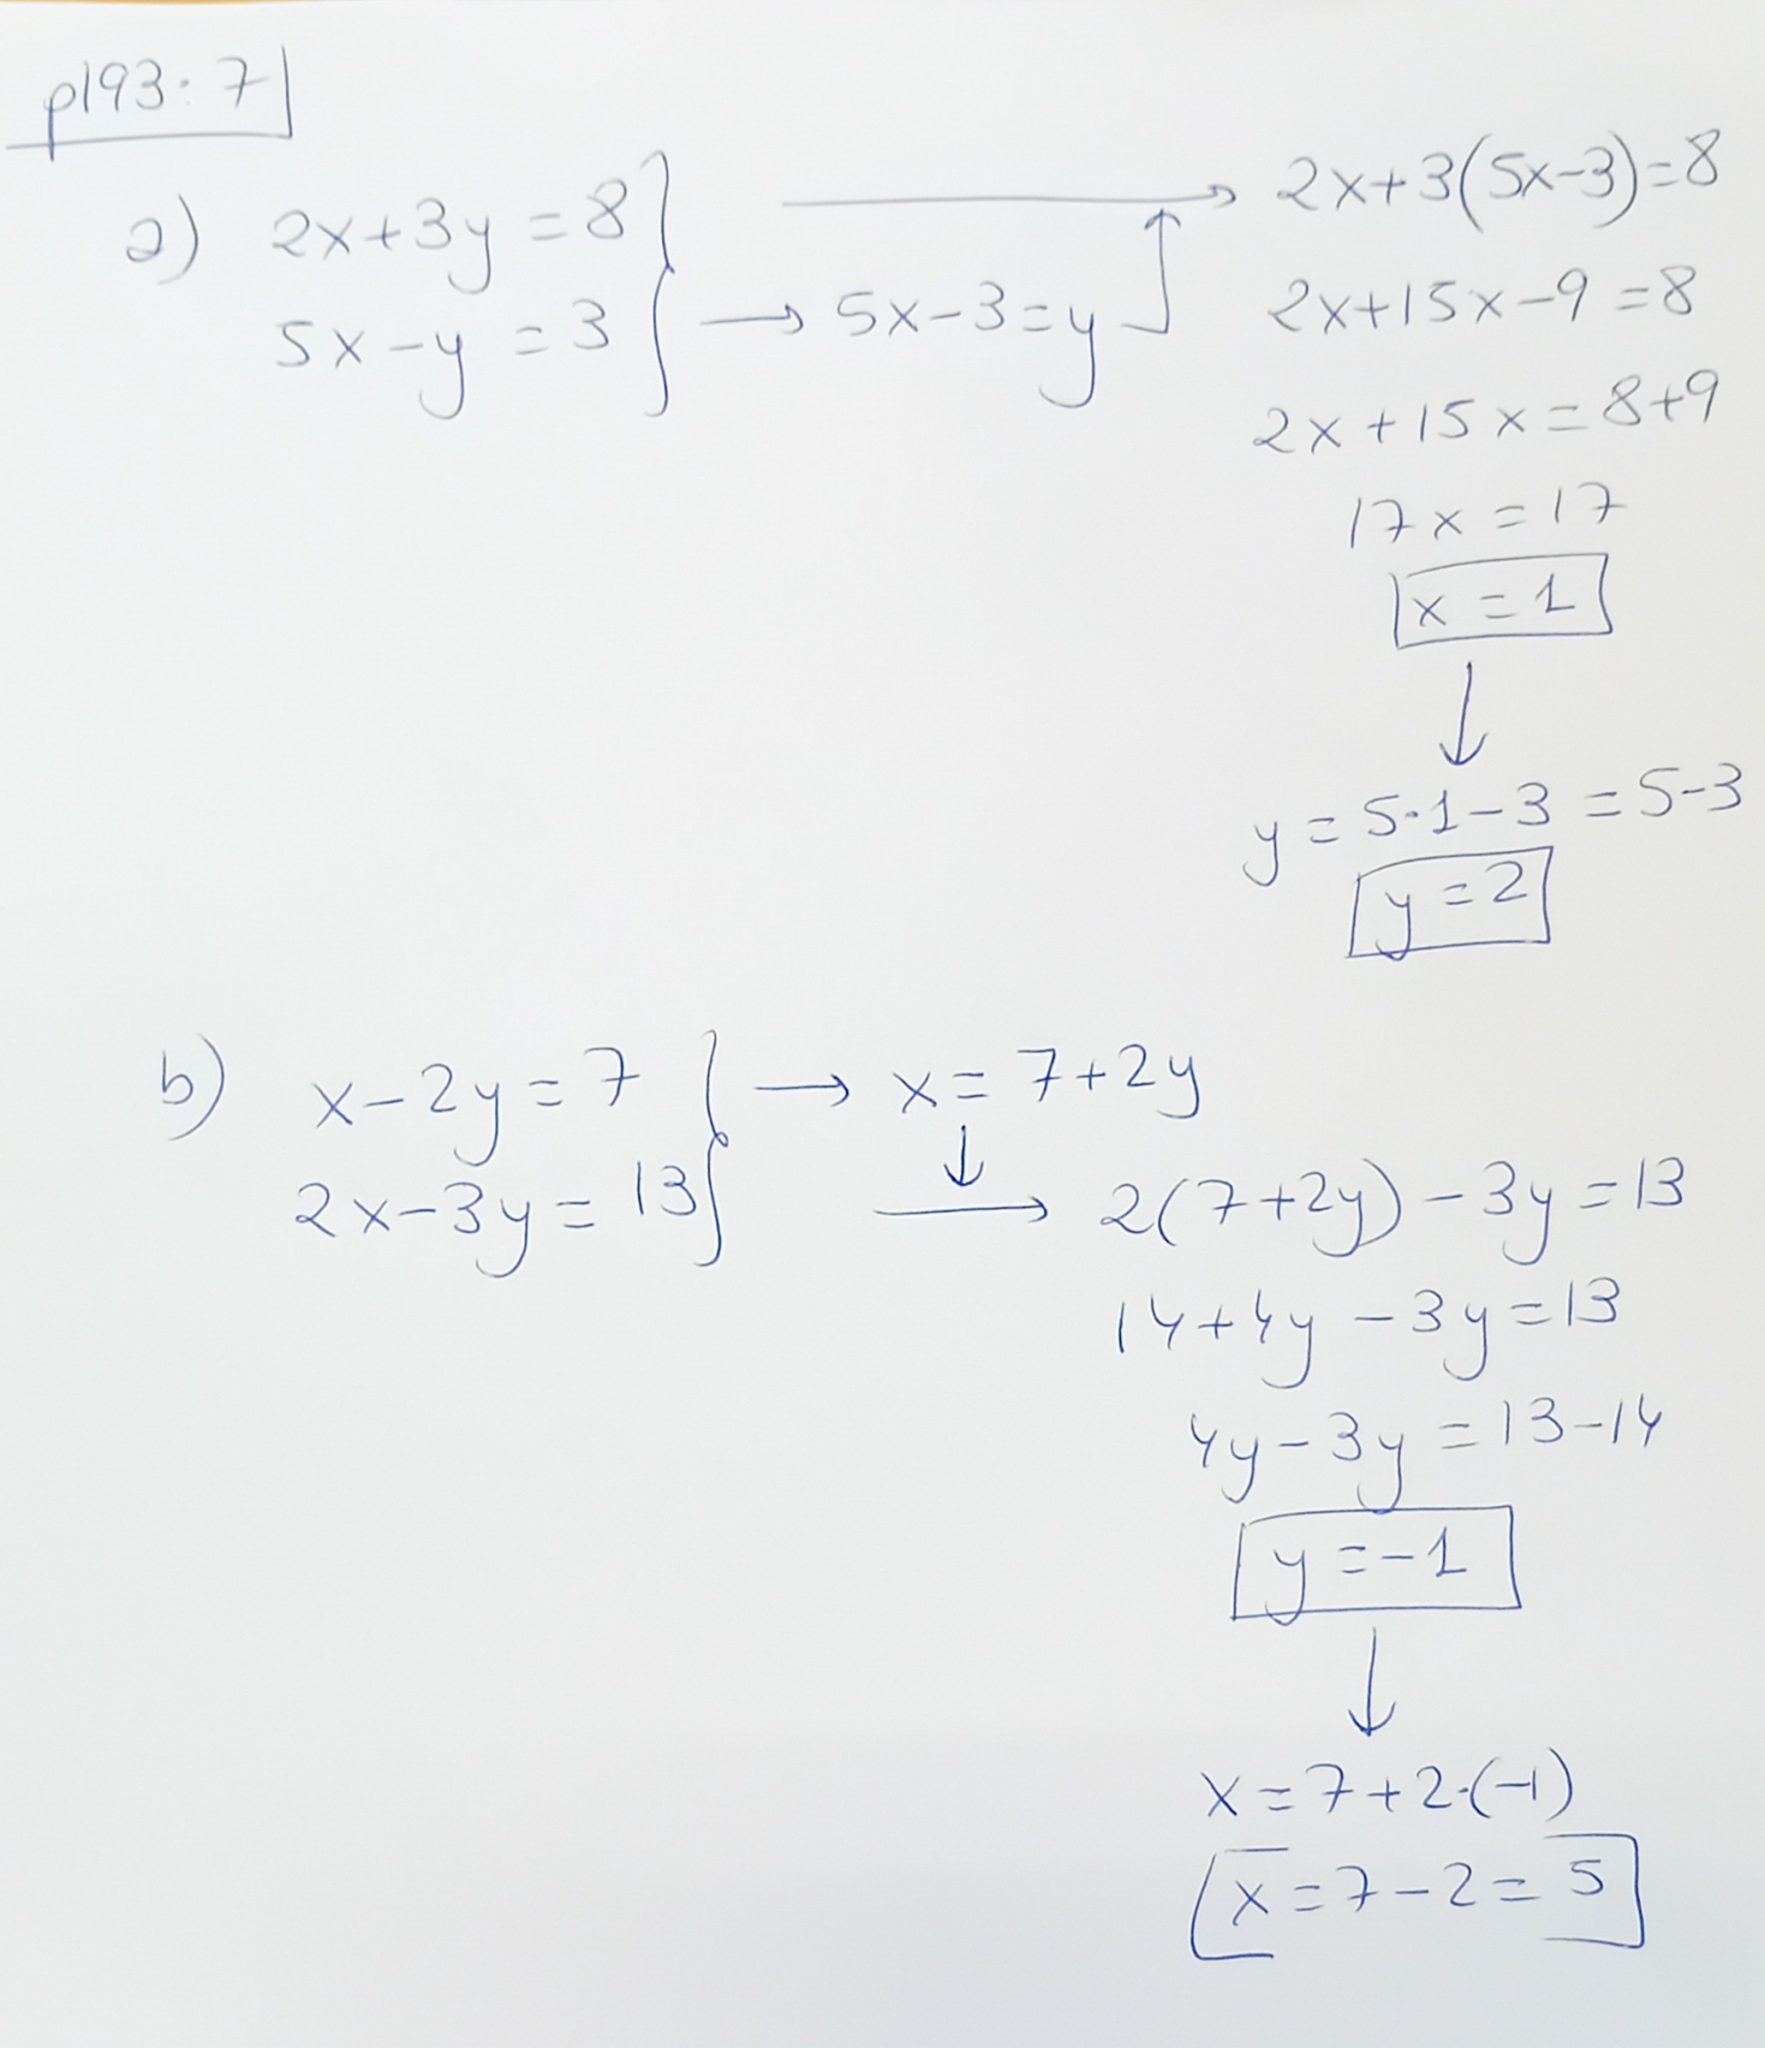 p193: 7
a) 2x+3y=8 } → 2x+3(5x-3)=8
5x-y=3 → 5x-3=y ↑ 2x+15x-9=8
2x+15x=8+9
17x=17
x=1
↓
y=5·1-3=5-3
y=2
b) x-2y=7 } → x=7+2y
↓
2x-3y=13 → 2(7+2y)-3y=13
14+4y-3y=13
4y-3y=13-14
y=-1
↓
x=7+2·(-1)
x=7-2=5